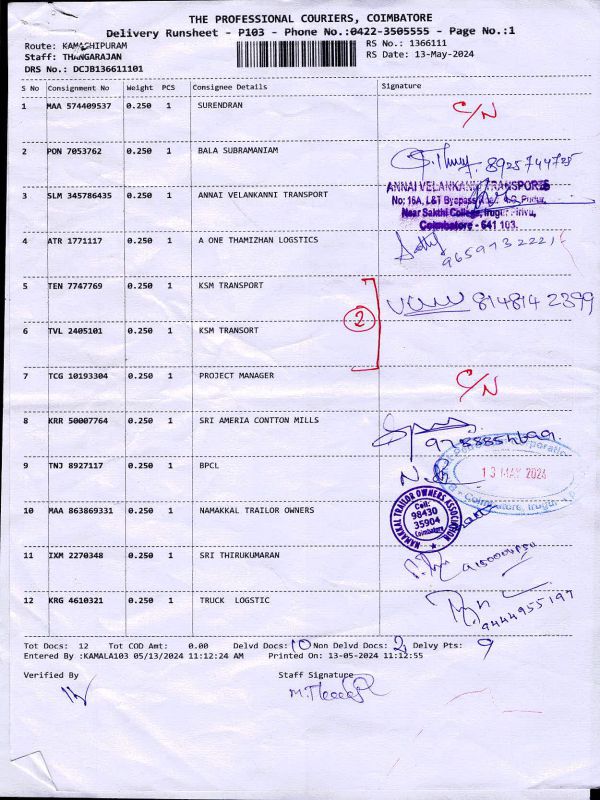 THE PROFESSIONAL COURIERS, COIMBATORE
Delivery Runsheet - P103 - Phone No.:0422-3505555 - Page No.:1
Route: KAMACHIPURAM
RS No.: 1366111
Staff: THANGARAJAN
RS Date: 13-May-2024
DRS No.: DCJB136611101
S No Consignment No Weight PCS Consignee Details Signature
1 MAA 574409537 0.250 1 SURENDRAN C/N
2 PON 7053762 0.250 1 BALA SUBRAMANIAM 8925744725
3 SLM 345786435 0.250 1 ANNAI VELANKANNI TRANSPORT
ANNAI VELANKANNI TRANSPORTS
No: 16A, L&T Byepass
Near Sakthi College, Irugur Pirivu,
Coimbatore - 641 103.
4 ATR 1771117 0.250 1 A ONE THAMIZHAN LOGSTICS
5 TEN 7747769 0.250 1 KSM TRANSPORT 8148142399
2
6 TVL 2405101 0.250 1 KSM TRANSORT
7 TCG 10193304 0.250 1 PROJECT MANAGER C/N
8 KRR 50007764 0.250 1 SRI AMERIA CONTTON MILLS
9 TNJ 8927117 0.250 1 BPCL
13 MAY 2024
Coimbatore, Irugur
10 MAA 863869331 0.250 1 NAMAKKAL TRAILOR OWNERS
NAMAKKAL TRAILOR OWNERS ASSOCIATION
Cell:
98430
35904
Coimbatore
11 IXM 2270348 0.250 1 SRI THIRUKUMARAN
12 KRG 4610321 0.250 1 TRUCK LOGSTIC 9444955197
Tot Docs: 12 Tot COD Amt: 0.00 Delvd Docs: 10 Non Delvd Docs: 2 Delvy Pts: 9
Entered By :KAMALA103 05/13/2024 11:12:24 AM Printed On: 13-05-2024 11:12:55
Verified By Staff Signature